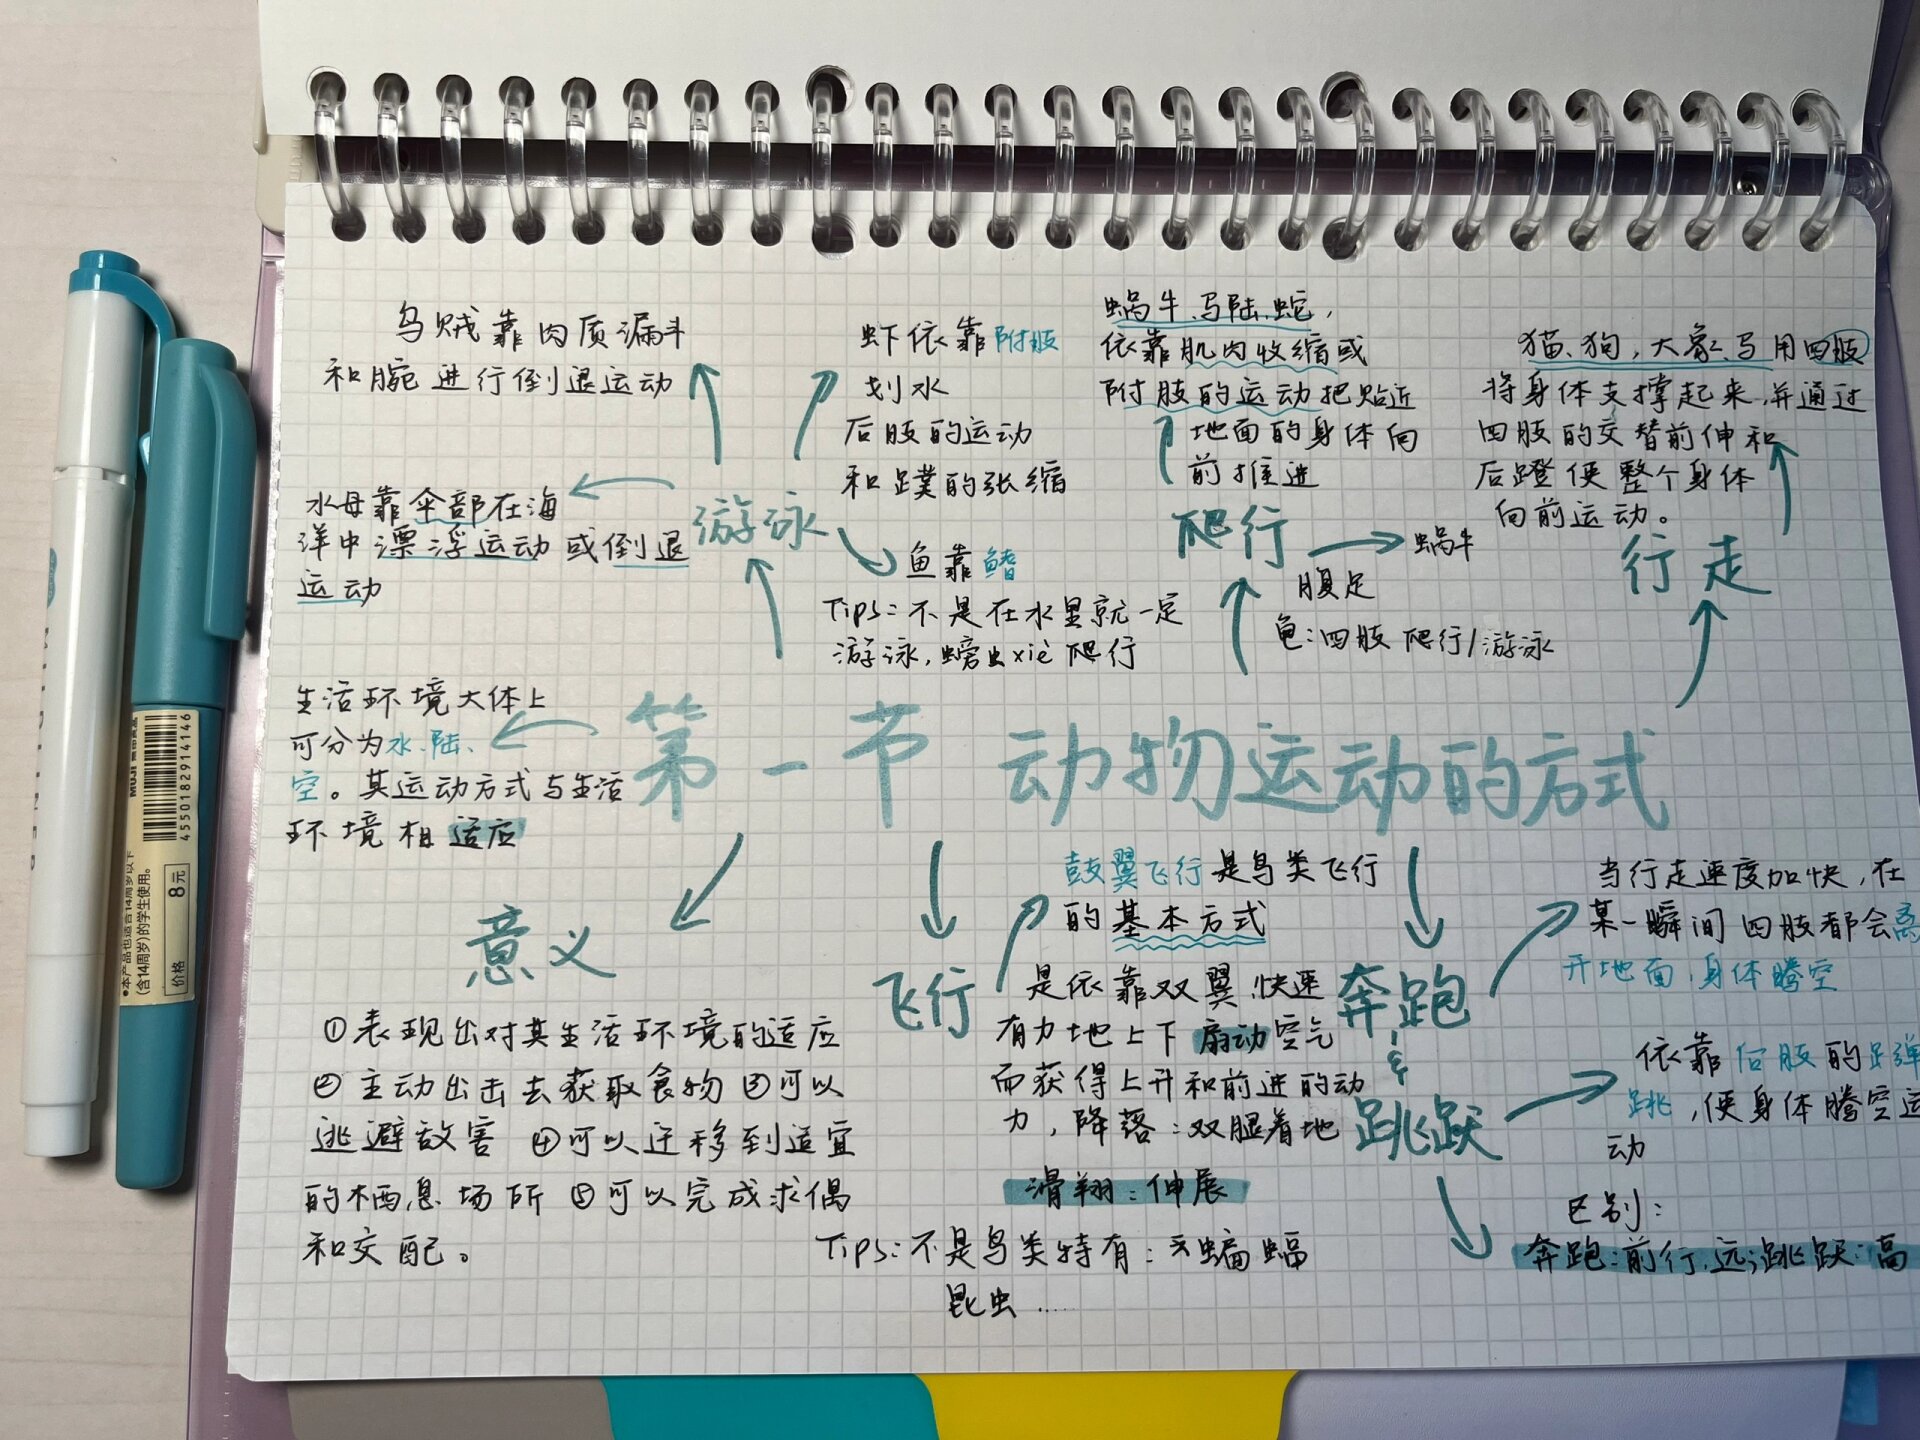 乌贼靠肉质漏斗
和腕进行倒退运动
虾依靠附肢
划水
后肢的运动
和蹼的张缩
蜗牛、马陆、蛇，
依靠肌肉收缩或
附肢的运动把贴近
地面的身体向
前推进
猫、狗，大象、马用四肢
将身体支撑起来，并通过
四肢的交替前伸和
后蹬使整个身体
向前运动。
水母靠伞部在海
洋中漂浮运动或倒退
运动
游泳
鱼靠鳍
Tips：不是在水里就一定
游泳，螃虫xiè爬行
爬行
蜗牛
腹足
龟：四肢爬行/游泳
行走
生活环境大体上
可分为水、陆、
空。其运动方式与生活
环境相适应
第一节 动物运动的方式
意义
①表现出对其生活环境的适应
②主动出击去获取食物 ③可以
逃避敌害 ④可以迁移到适宜
的栖息场所 ⑤可以完成求偶
和交配。
飞行
鼓翼飞行是鸟类飞行
的基本方式
是依靠双翼快速
有力地上下扇动空气
而获得上升和前进的动
力，降落：双腿着地
滑翔：伸展
Tips：不是鸟类特有：蝙蝠
昆虫……
奔跑
&
跳跃
当行走速度加快，在
某一瞬间四肢都会离
开地面，身体腾空
依靠后肢的弹
跳，使身体腾空运
动
区别：
奔跑：前行，远；跳跃：高
MILDLINER
MUJI
4550182914146
•本产品也适合14周岁以下
(含14周岁)的学生使用。
价格 8元